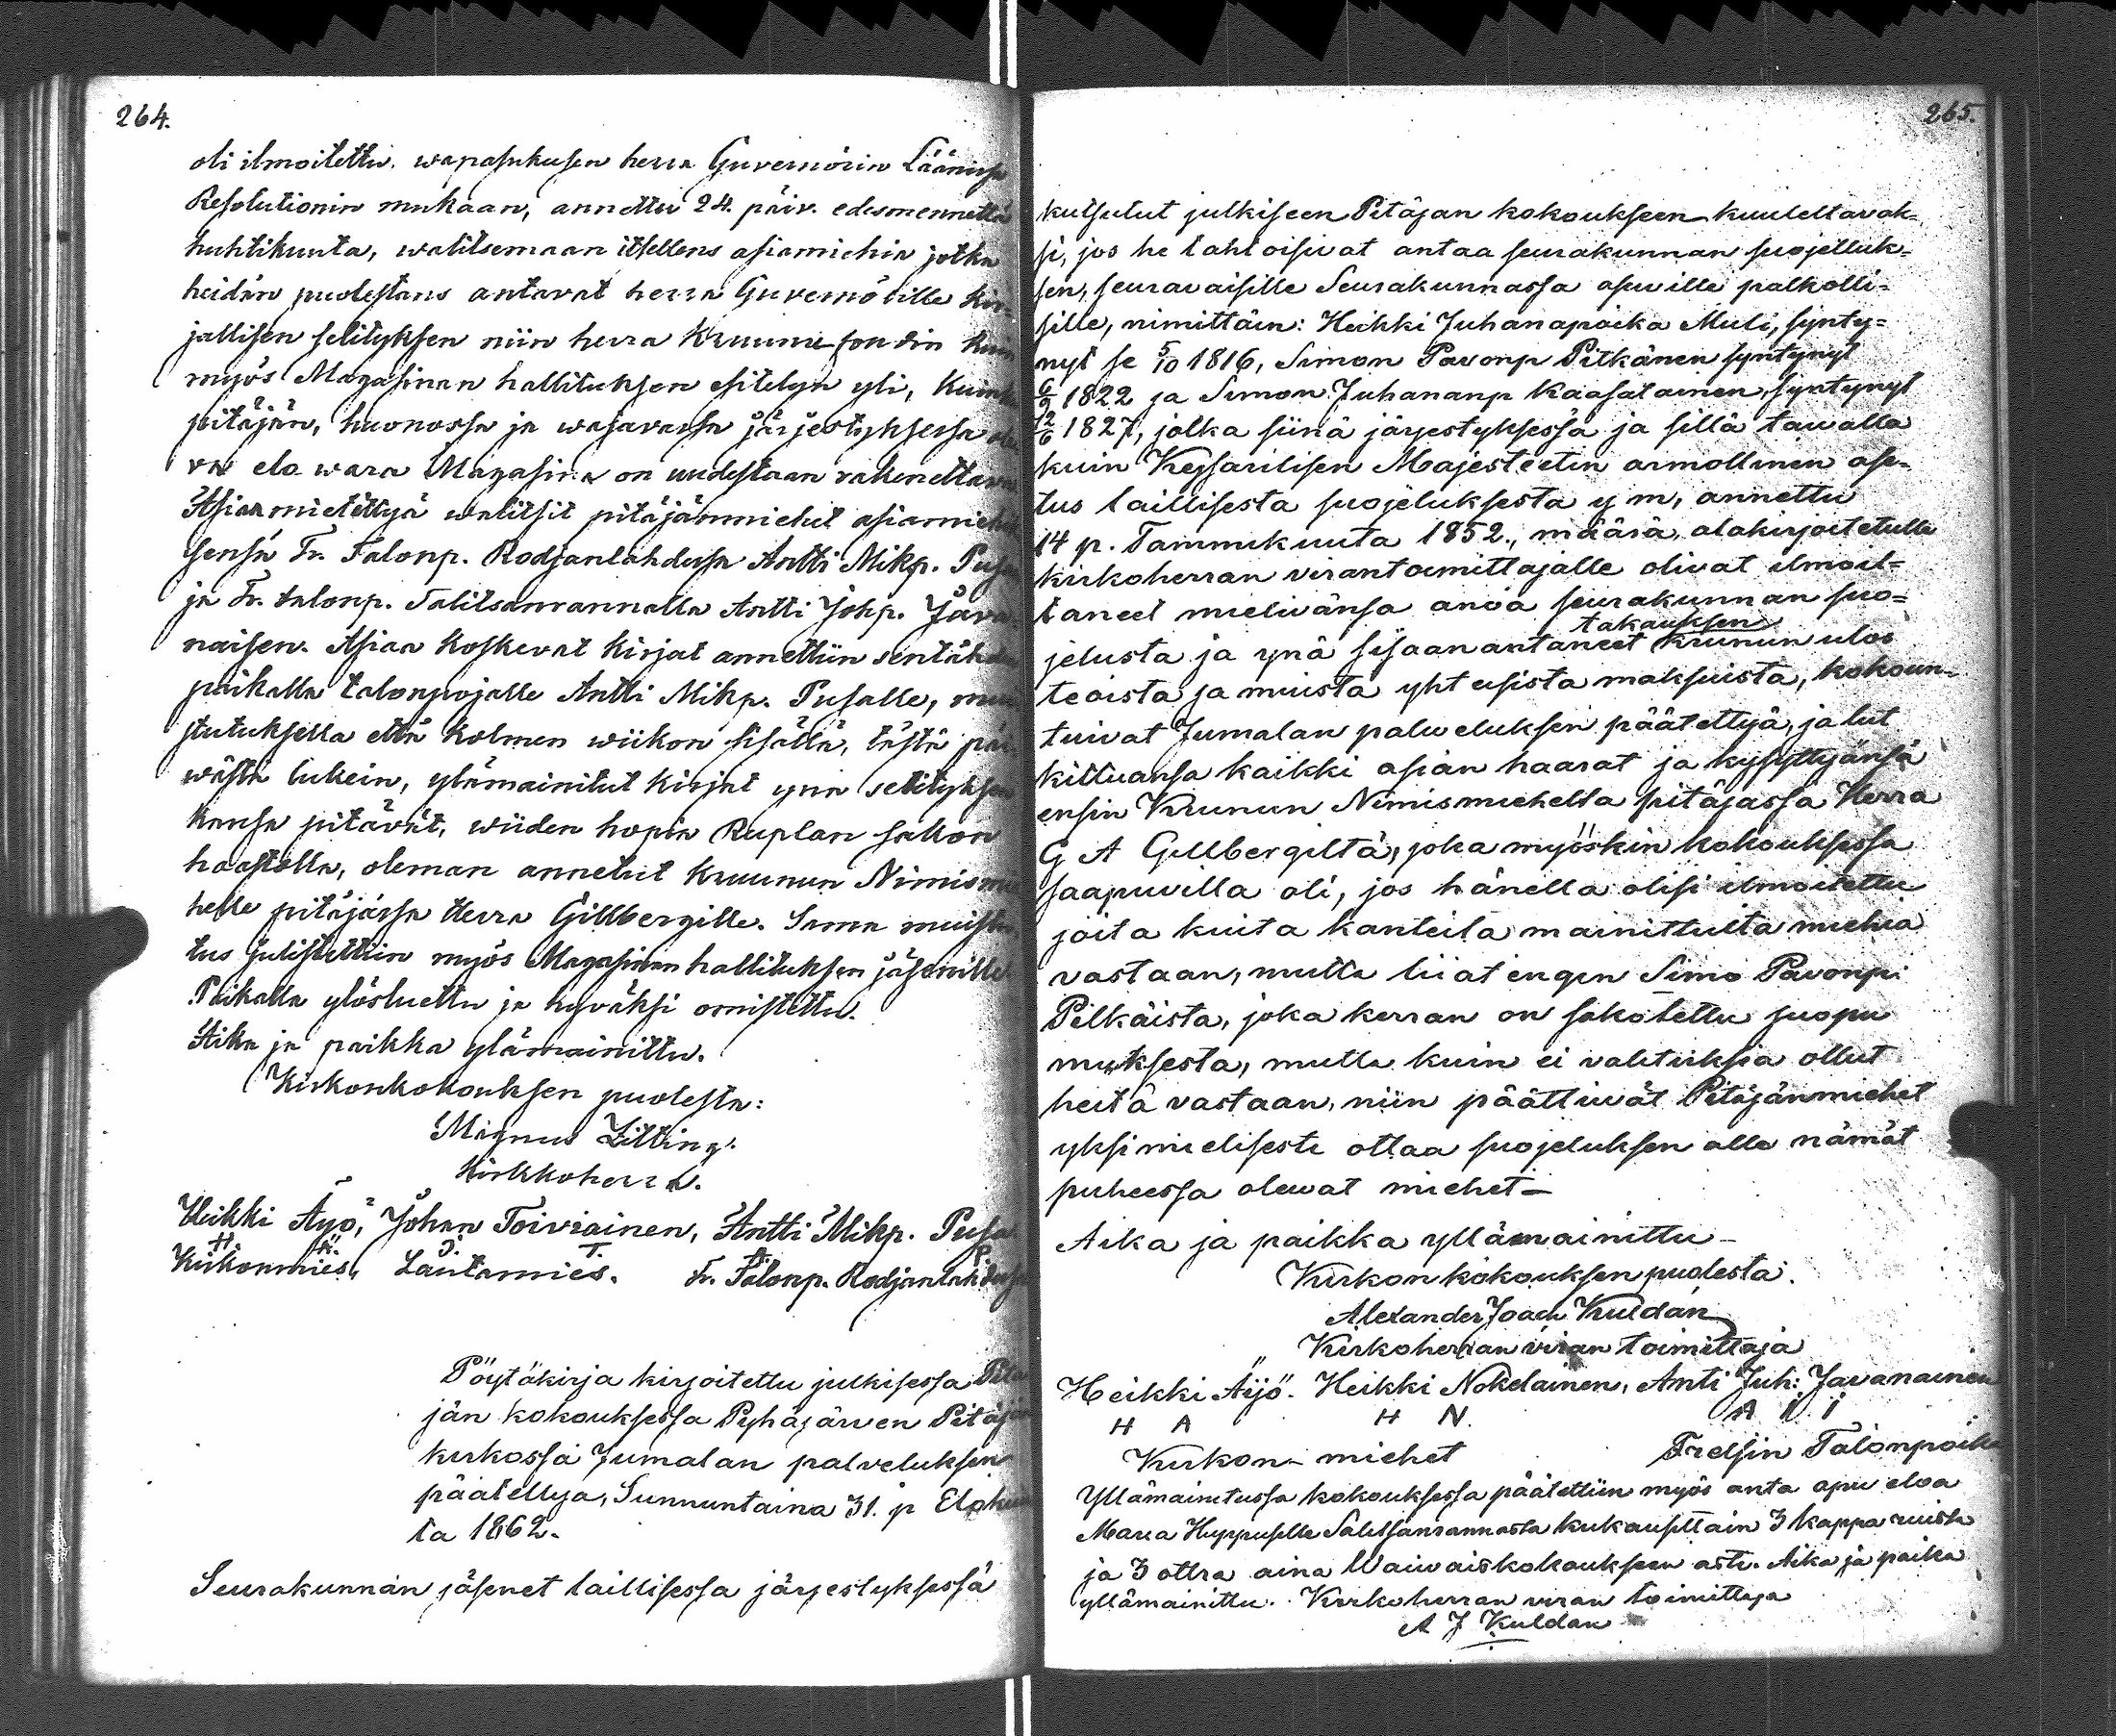 264.
oli ilmoitettu. wapasukusen herra Guvernörin Läänissä
Resolutionin mukaan, annettu 24. päiv. edesmennettä
huhtikuuta, walitsemaan itsellens asiamiehiä jotka
heidän puolestans antavat herra Guvernörille kir-
jallisen selityksen niin herra Kruununfoudin kuin
myös Magasinan hallituksen esitelyn yli, kuinka
pitäjän, huonossa ja wajavassa järjestyksessä ole
va elo wara Magasina on uudestaan rakenettava
Asiaa mietittyä walitsit pitäjänmiehet asiamiehik
sensä Fr. Talonp. Rodjanlahdessa Antti Mikp. Pusa
ja Fr. talonp. Salitsanrannalla Antti Johp. Java
naisen. Asiaa koskevat kirjat annettiin sentähden
paikalla talonpojalle Antti Mikp. Pusalle, mui
stutuksella että kolmen wiikon sisällä, tästä päi
wästä lukein, ylämainitut kirjat ynä selityksen
kansa pitävät, wiiden hopia Ruplan sakon
haastolla, oleman annetut Kruunun Nimismie
helle pitäjässä Herra Gillbergille. Sama muistu
tus julistettiin myös Magasinan hallituksen jäsenille
Paikalla ylösluettu ja hyväksi omistettu.
Aika ja paikka ylämainittu.
Kirkonkokouksen puolesta:
Magnus Zitting.
Kirkkoherra.
Heikki Äyö, Johan Toiviainen, Antti Mikp. Pusa
H Ä. J. T. A. P
Kirkonmies, Lautamies. Fr. Talonp. Rodjanlahdessa
Pöytäkirja kirjoitettu julkisessa Pitä
jän kokouksessa Pyhäjärven Pitäjän
kirkossa Jumalan palveluksen
päätettyä, Sunnuntaina 31. p Elokuu
ta 1862.
Seurakunnan jäsenet laillisessa järjestyksessä
265.
kutsutut julkiseen Pitäjan kokoukseen kuuleltavak-
si, jos he tahtoisivat antaa seurakunnan suojelluk-
sen, seuravaisille Seurakunnassa asuville palkolli-
sille, nimittäin: Heikki Juhanapoika Muli, synty-
nyt se 5/10 1816, Simon Pavonp Pitkänen syntynyt
6/9 1822 ja Simon Juhananp Kaasalainen, syntynyt
12/6 1827, jotka siinä järjestyksessä ja sillä tavalla
kuin Keysarilisen Majesteetin armollinen ase-
tus laillisesta suojeluksesta y m, annettu
14 p. Tammikuuta 1852., määrä, alakirjoitetulle
kirkoherran virantoimittajalle olivat ilmoit-
taneet mielivänsa anoa seurakunnan suo-
takauksen
jelusta ja ynä sijaan antaneet krunun ulos
teoista ja muista yhteisista maksuista, kokoun-
tuivat Jumalan palveluksen päätettyä, ja tut
kittuansa kaikki asian haarat ja kysyttyänsä
ensin Krunun Nimismiehelta pitäjassa Herra
G A Gillbergiltä, joka myöskin kokouksessa
saapuvilla oli, jos hänella olisi ilmoitettu
joita kuita kanteita mainittuita miehiä
vastaan, mutta liiatengin Simo Pavonp:
Pitkäista, joka kerran on sakotettu juopu
muksesta, mutta kuin ei valituksia ollut
heitä vastaan, niin päättivät Pitäjänmiehet
yksimielisesti ottaa suojeluksen alle nämät
puheessa olevat miehet –
Aika ja paikka yllämainittu –
Kirkonkokouksen puolesta.
Alexander Joach Kuldán
Kirkoherran viran toimittaja
Heikki Äyö. Heikki Nokelainen, Anti Juh: Javanainen
H A H N. A I I
Kirkon- miehet Frelsin Talonpoika
Yllämainitussa kokouksessa päätettiin myös anta apu eloa
Maria Huppuselle Salitsanrannasta kukausittain 3 kappa ruista
ja 3 ottra aina Waivaiskokoukseen asti. Aika ja paika
yllämainittu. Kirkoherran viran toimittaja
A J Kuldan